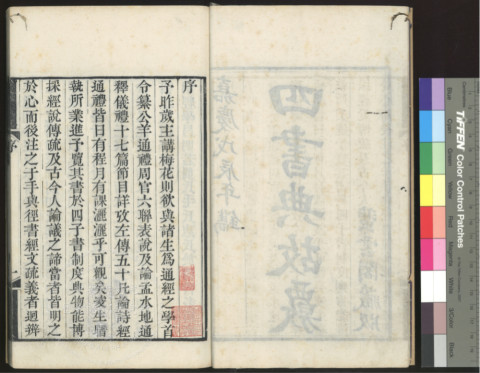 序
予昨歲主講梅花則欲與諸生為通經之學首
令纂公羊通禮周官六聯表說及論孟水地通
釋儀禮十七篇節目詳攷左傳五十凡論詩經
通禮皆日有程月有課灑灑乎可觀矣凌生
執所業進予覽其書於四子書制度典物能博
採經說傳疏及古今人論議之諦當者皆明之
於心而後注之于手與徑書經文疏義者迥辨
序
四書典故覈
嘉慶戊辰年鐫
TIFFEN Color Control Patches
Blue
Cyan
Green
Yellow
Red
Magenta
White
3/Color
Black